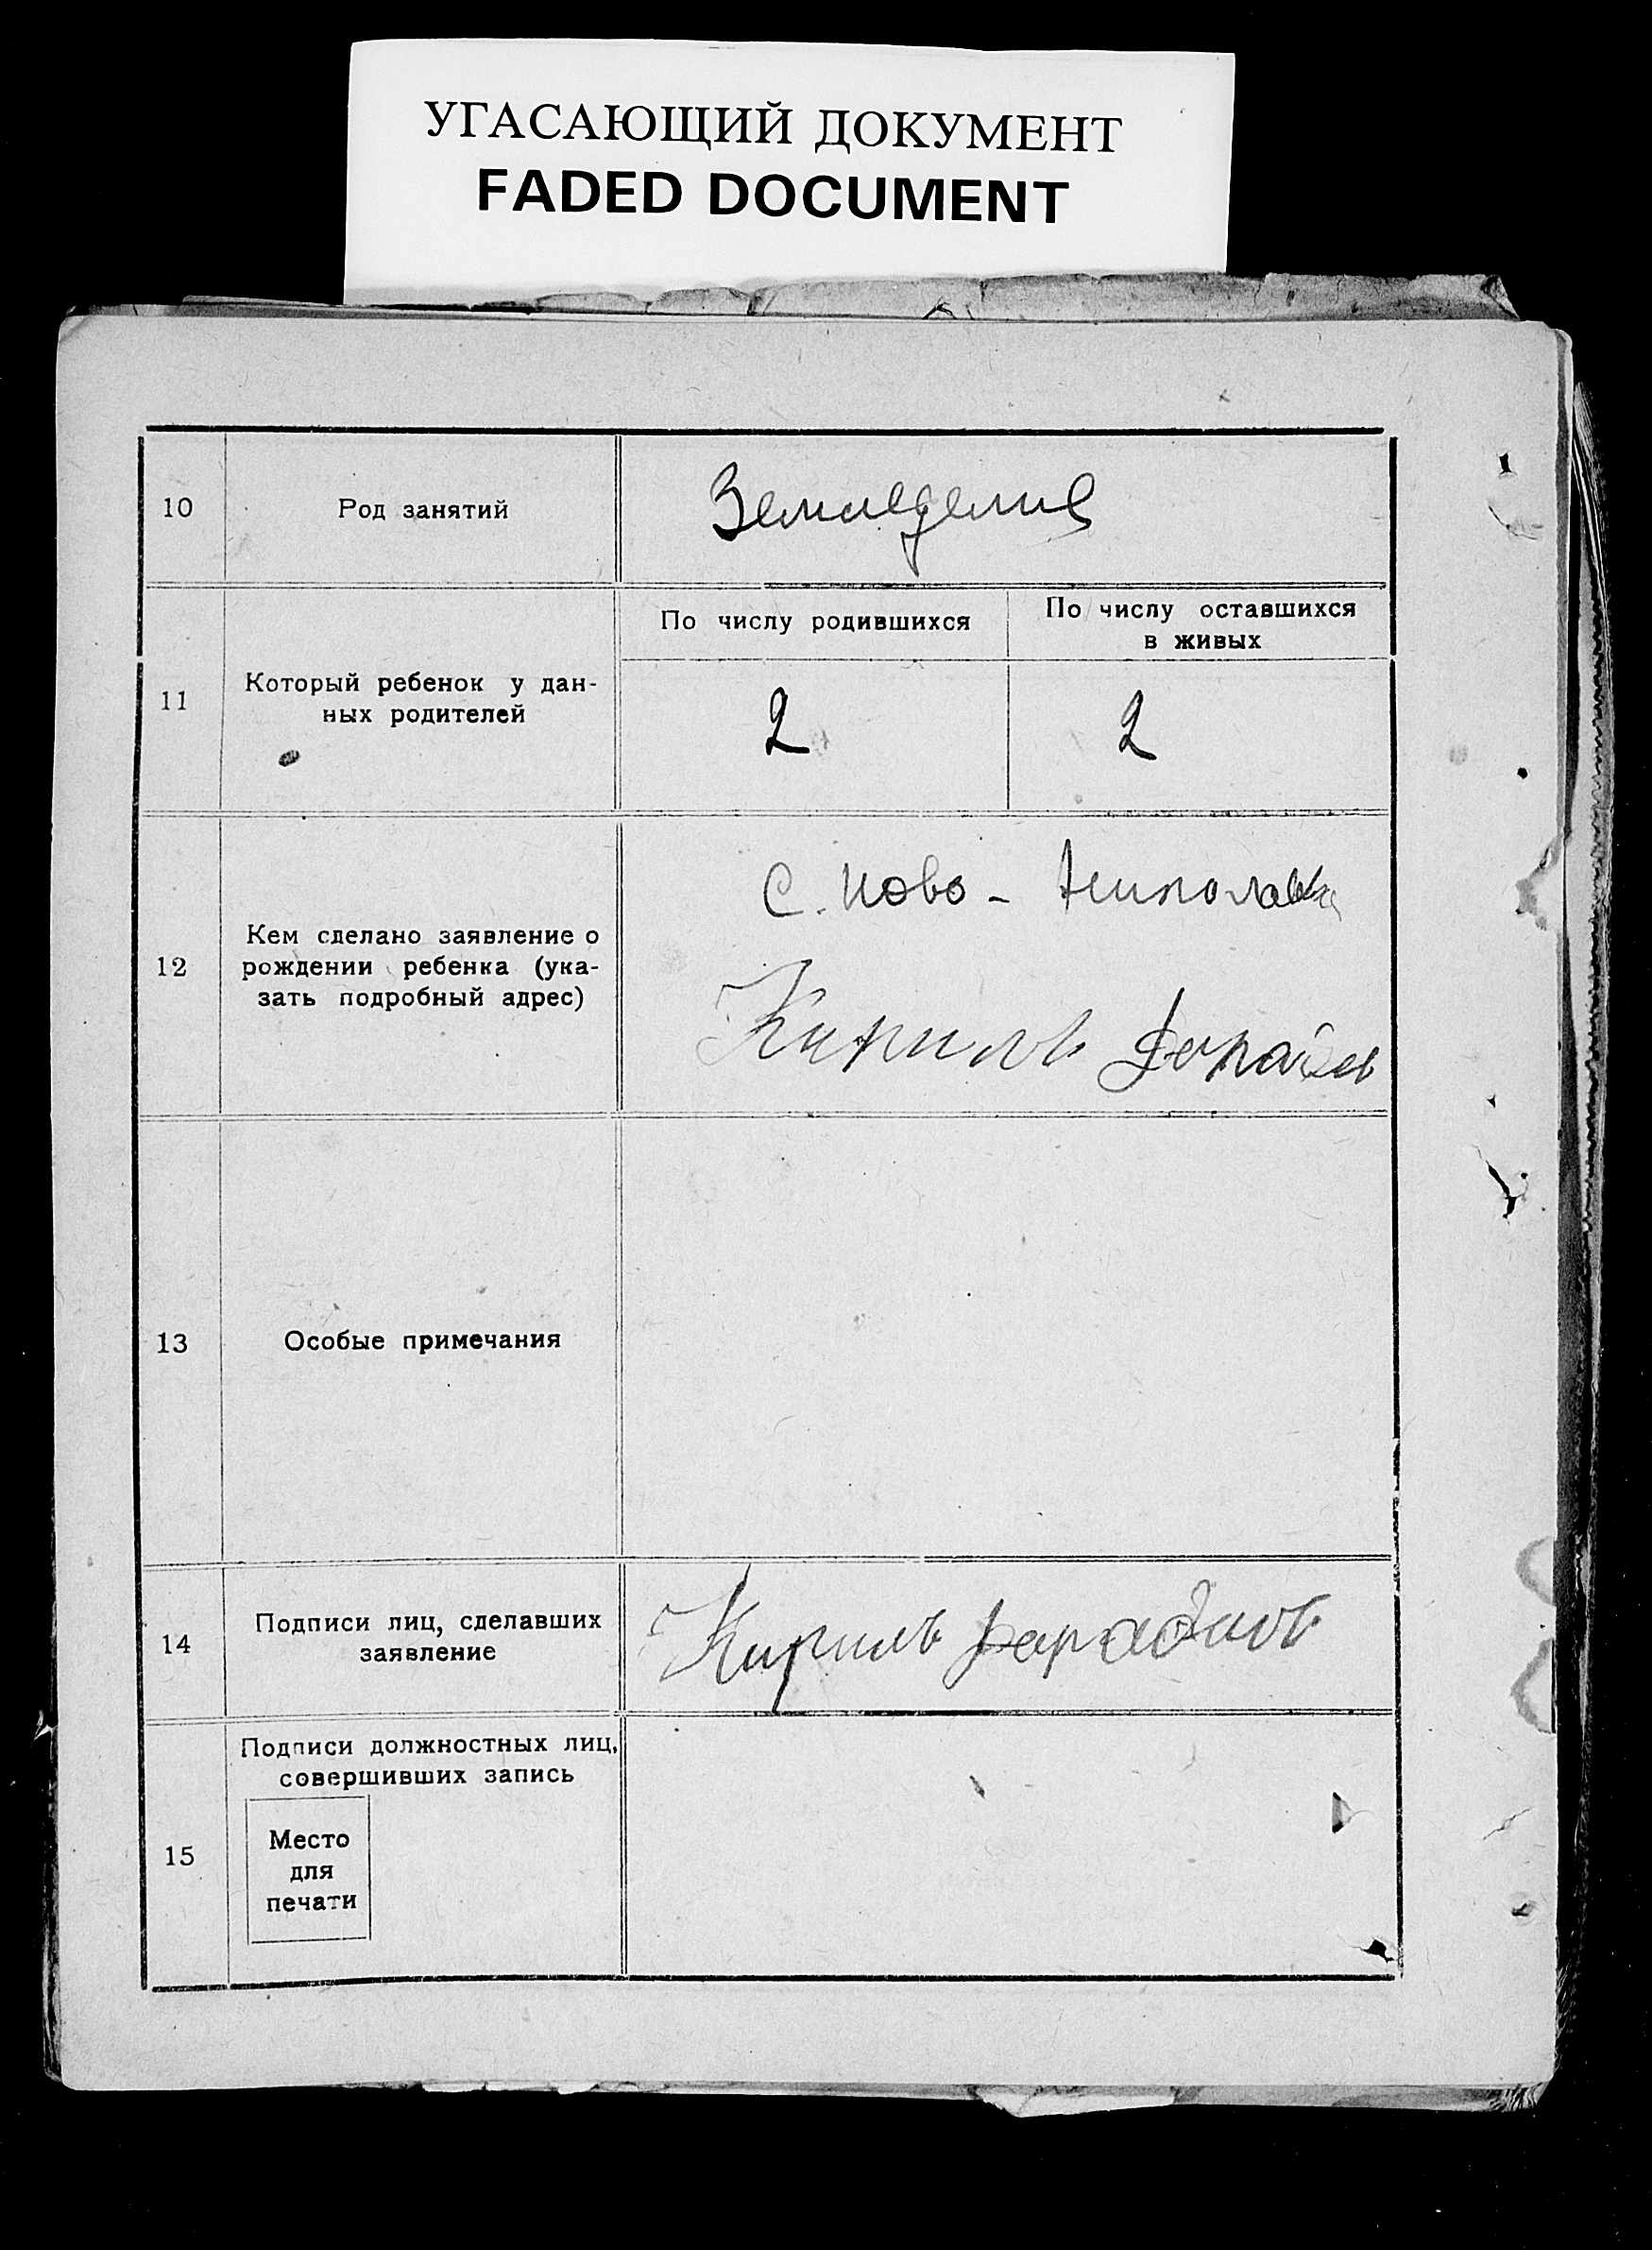 УГАСАЮЩИЙ ДОКУМЕНТ
FADED DOCUMENT
10
Род занятий
Земледелие
11
Который ребенок у дан-
ных родителей
По числу родившихся
По числу оставшихся
в живых
2
2
12
Кем сделано заявление о
рождении ребенка (ука-
зать подробный адрес)
С. Ново-
Кирилъ
13
Особые примечания
14
Подписи лиц, сделавших
заявление
Кирилъ
15
Подписи должностных лиц,
совершивших запись
Место
для
печати